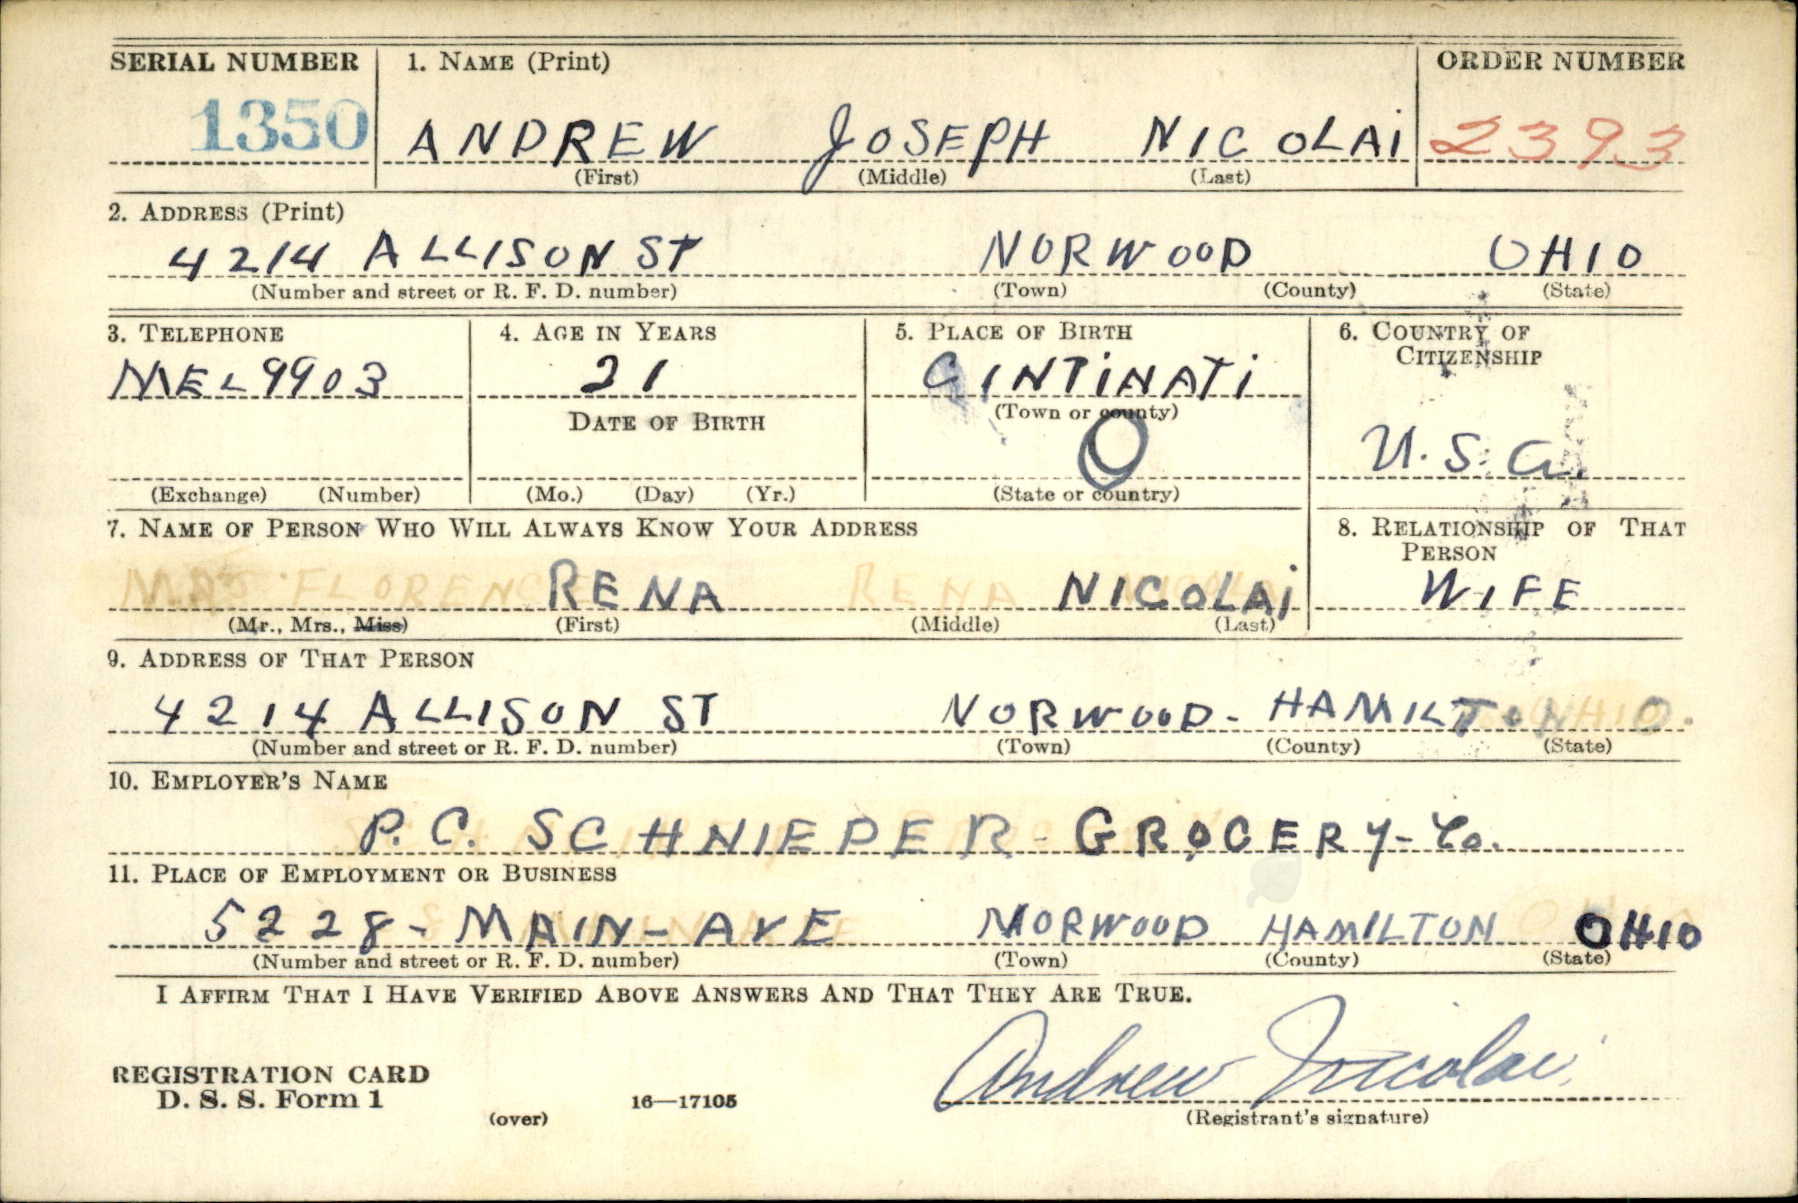 SERIAL NUMBER 1. NAME (Print) ORDER NUMBER
1350 ANDREW JOSEPH NICOLAI 2393
(First) (Middle) (Last)
2. ADDRESS (Print)
4214 ALLISON ST NORWOOD OHIO
(Number and street or R. F. D. number) (Town) (County) (State)
3. TELEPHONE 4. AGE IN YEARS 5. PLACE OF BIRTH 6. COUNTRY OF CITIZENSHIP
MEL 9903 21 CINTINATI
DATE OF BIRTH (Town or county)
O U.S.A.
(Exchange) (Number) (Mo.) (Day) (Yr.) (State or country)
7. NAME OF PERSON WHO WILL ALWAYS KNOW YOUR ADDRESS 8. RELATIONSHIP OF THAT PERSON
MRS FLORENCE RENA RENA NICOLAI WIFE
(Mr., Mrs., Miss) (First) (Middle) (Last)
9. ADDRESS OF THAT PERSON
4214 ALLISON ST NORWOOD - HAMILTON O.
(Number and street or R. F. D. number) (Town) (County) (State)
10. EMPLOYER'S NAME
P. C. SCHNIEDER - GROCERY - Co.
11. PLACE OF EMPLOYMENT OR BUSINESS
5228 - MAIN - AVE NORWOOD HAMILTON OHIO
(Number and street or R. F. D. number) (Town) (County) (State)
I AFFIRM THAT I HAVE VERIFIED ABOVE ANSWERS AND THAT THEY ARE TRUE.
Andrew Nicolai
REGISTRATION CARD
D. S. S. Form 1 (over) 16—17105 (Registrant's signature)